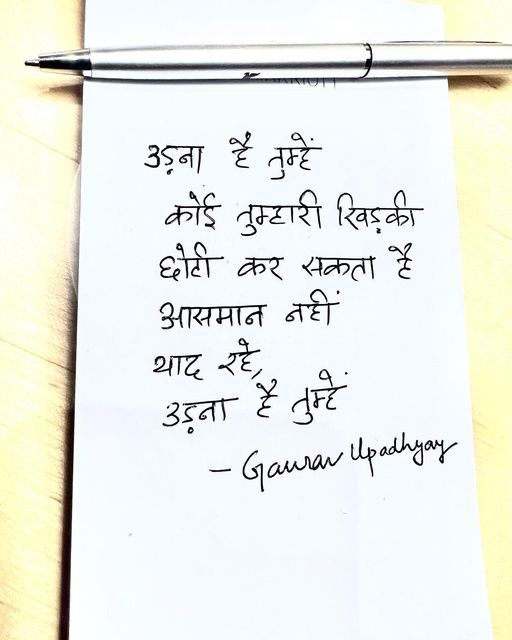 उड़ना है तुम्हें
कोई तुम्हारी खिड़की
छोटी कर सकता है
आसमान नहीं
याद रहे,
उड़ना है तुम्हें
- Gaurav Upadhyay